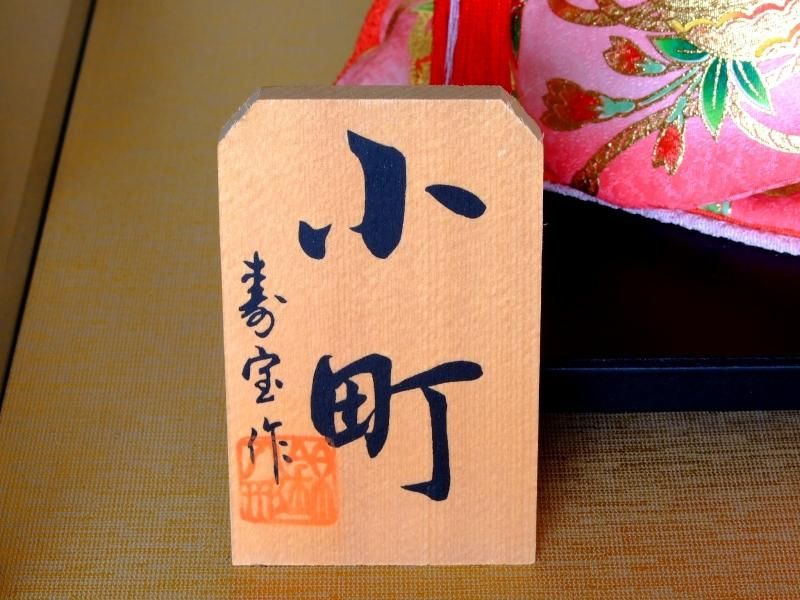 小町
寿宝作